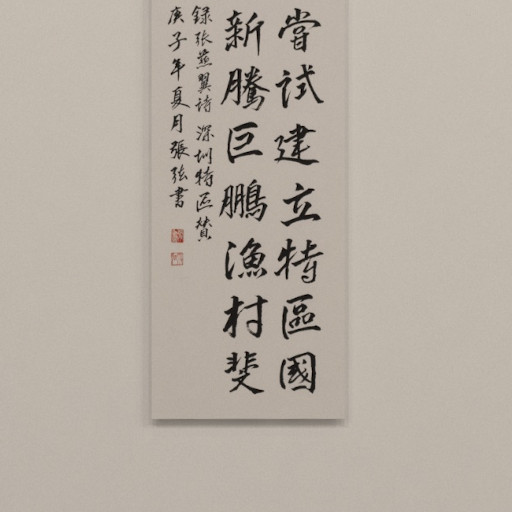 嘗試建立特區國
新騰巨鵬漁村斐
錄張燕翼詩 深圳特區贊
庚子年夏月張弦書